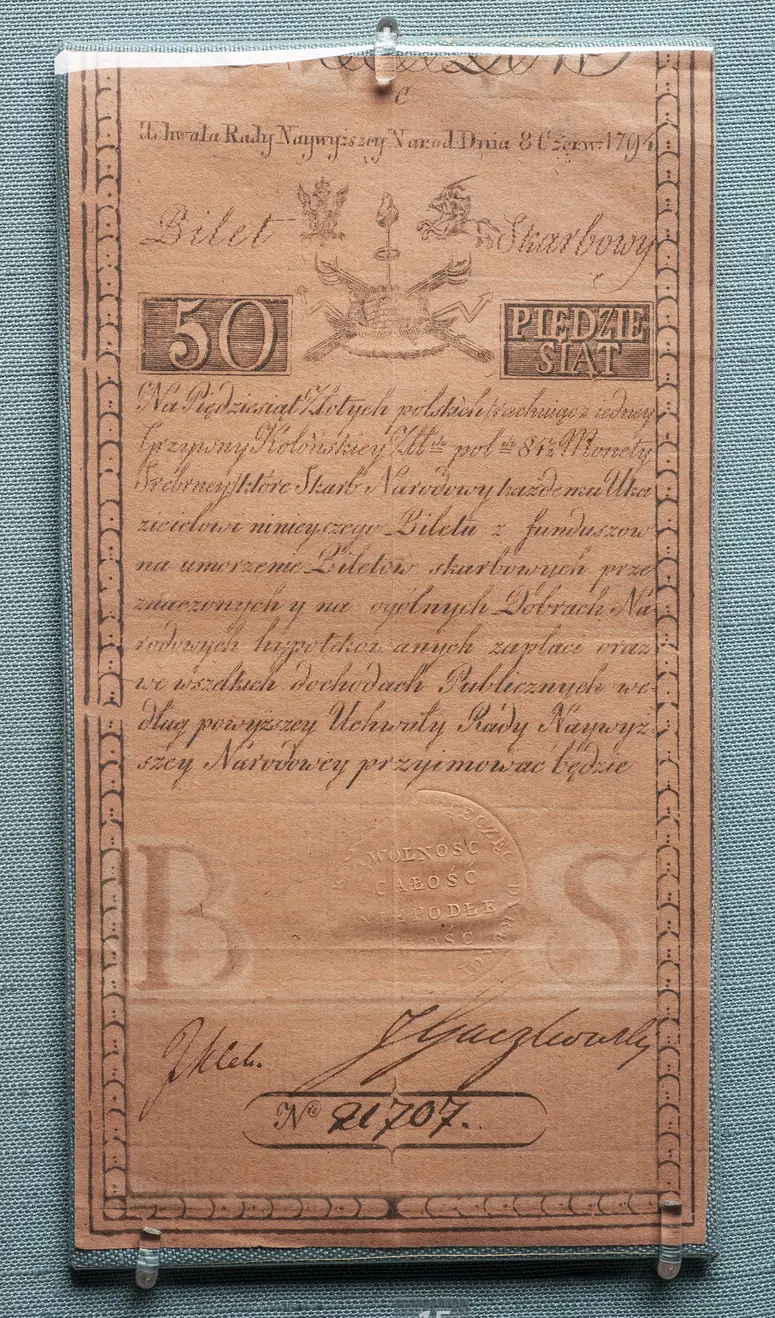 C
Uchwała Rady Naywyższey Narod: Dnia 8 Czerw: 1794.
Bilet Skarbowy
50
PIĘDZIE
SIĄT
Na Piędziesiąt Złotych polskich rachuiąc z iedney
Grzywny Kolońskiey Złł pol 84½ Monety
Srebrney które Skarb Narodowy każdemu Uka
zicielowi ninieyszego Biletu z funduszow
na umorzenie Biletow skarbowych prze
znaczonych y na ogólnych Dobrach Na
rodowych hypotekowanych zapłaci oraz
we wszelkich dochodach Publicznych we-
dług powyższey Uchwały Rady Naywyż
szey Narodowey przyimować będzie
WOLNOSC
CAŁOŚĆ
NIEPODLE
GŁOŚĆ
B S
Nro 21707.